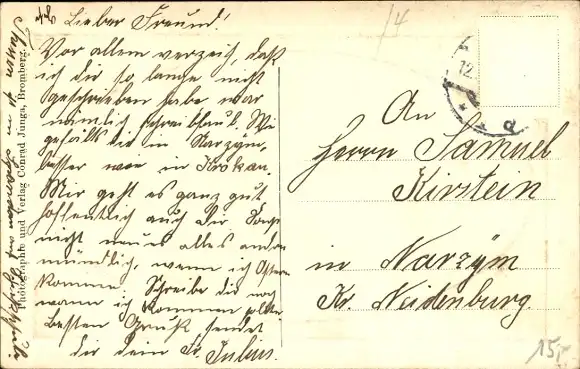 Lieber Freund!
Vor allem verzeih, daß
ich dir so lange nicht
geschrieben habe war
nämlich
gefällt dir in Narzym,
besser wie in Krokau.
Mir geht es ganz gut
hoffentlich auch dir Sonst
nicht neues alles andre
mündlich, wenn ich Ostern
komme. Schreibe dir noch
wann ich kommen sollte
Besten Gruß sendet
dir dein Fr. Julius.
An
Herrn Samuel
Kirstein
in Narzym
Kr Neidenburg
Photographie und Verlag Conrad Junga, Bromberg.
12
14
15,-